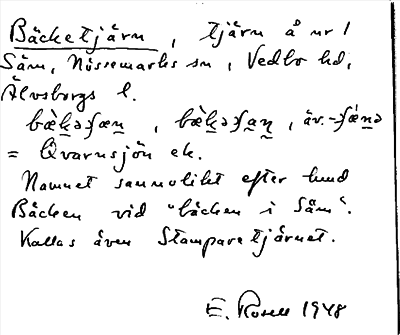 Bäcketjärn, tjärn å nr 1
Säm, Nössemarks sn, Vedbo hd,
Älvsborgs l.
bæ̀kəʃæn, bæ̀kəʃan, äv. -ʃǽnə
= Qvarnsjön ek.
Namnet sannolikt efter
Bäcken vid "bäcken i Säm".
Kallas även Stamparetjärnet.
E. Rosell 1948